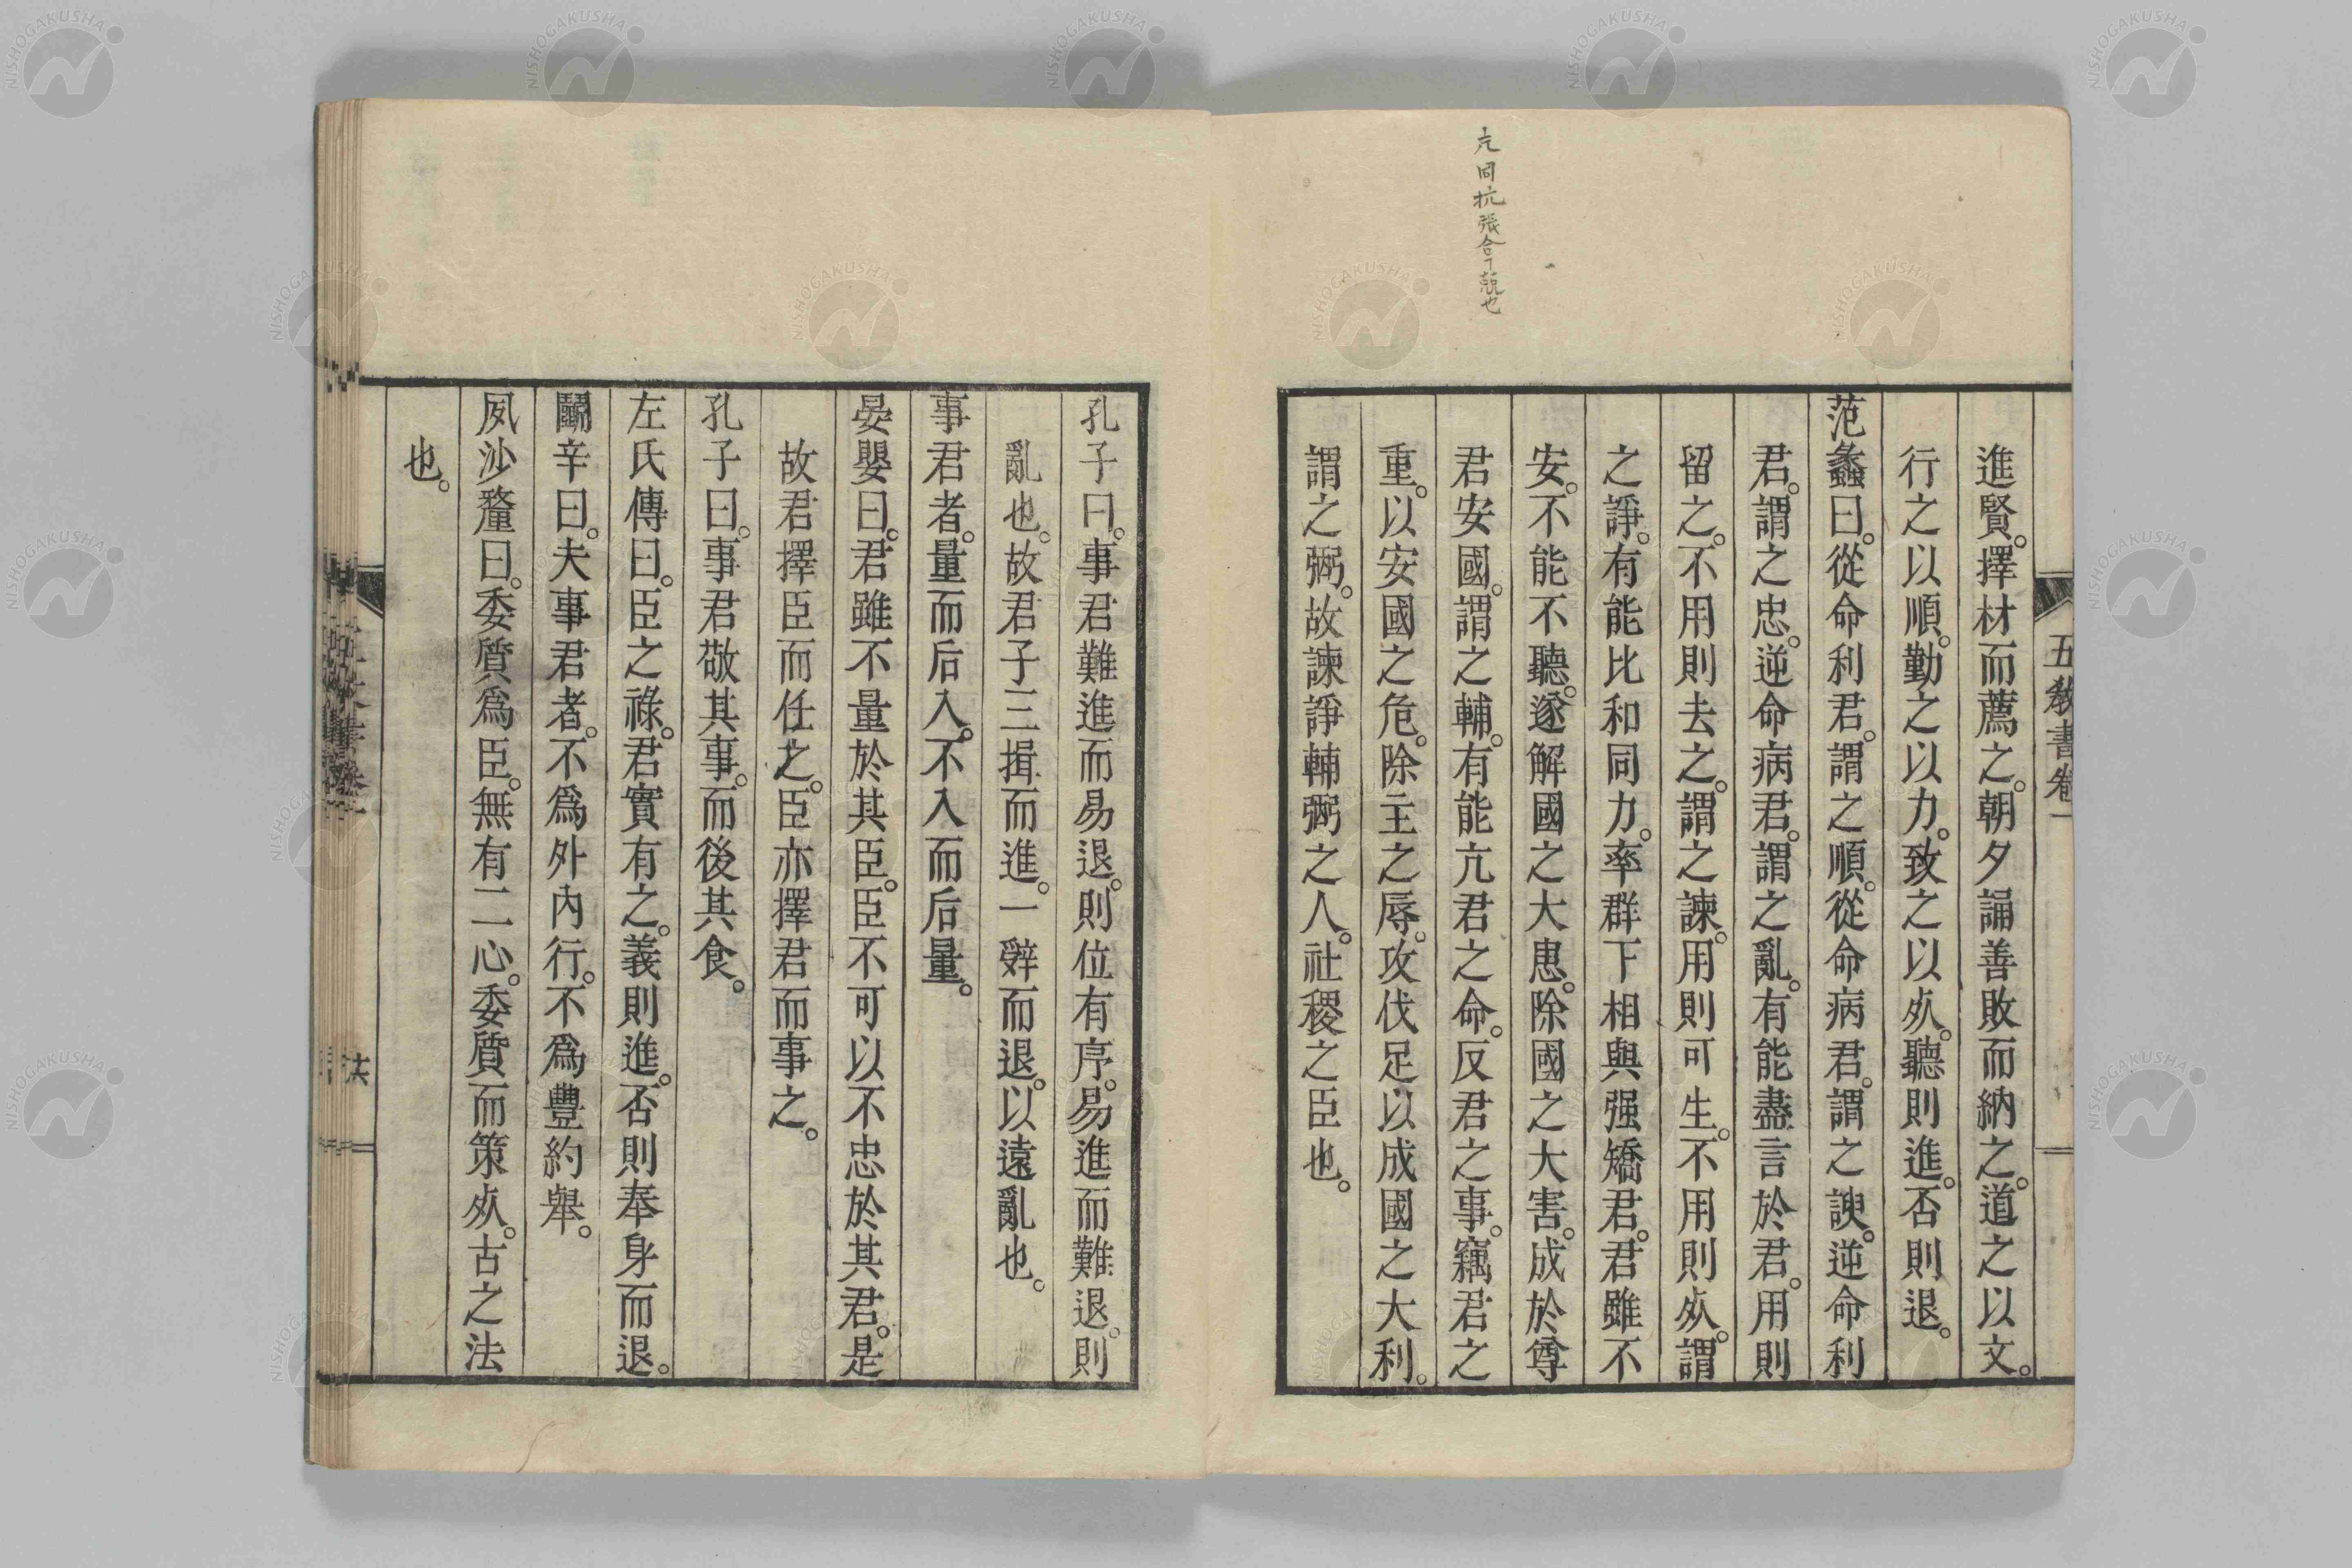 亢同抗張合丁競也
五教書卷一
進賢。擇材而薦之。朝夕誦善敗而納之。道之以文。
行之以順。勤之以力。致之以死。聽則進。否則退。
范蠡曰。從命利君。謂之順。從命病君。謂之諛。逆命利
君。謂之忠。逆命病君。謂之亂。有能盡言於君。用則
留之。不用則去之。謂之諫。用則可生。不用則死。謂
之諍。有能比和同力。率群下相與强矯君。君雖不
安。不能不聽。遂解國之大患。除國之大害。成於尊
君安國。謂之輔。有能亢君之命。反君之事。竊君之
重。以安國之危。除主之辱。攻伐足以成國之大利。
謂之弼。故諫諍輔弼之人。社稷之臣也。
孔子曰。事君難進而易退。則位有序。易進而難退。則
亂也。故君子三揖而進。一辭而退。以遠亂也。
事君者。量而后入。不入而后量。
晏嬰曰。君雖不量於其臣。臣不可以不忠於其君。是
故君擇臣而任之。臣亦擇君而事之。
孔子曰。事君敬其事。而後其食。
左氏傳曰。臣之祿。君實有之。義則進。否則奉身而退。
鬬辛曰。夫事君者。不爲外內行。不爲豐約舉。
夙沙釐曰。委質爲臣。無有二心。委質而策死。古之法
也。
NISHOGAKUSHA